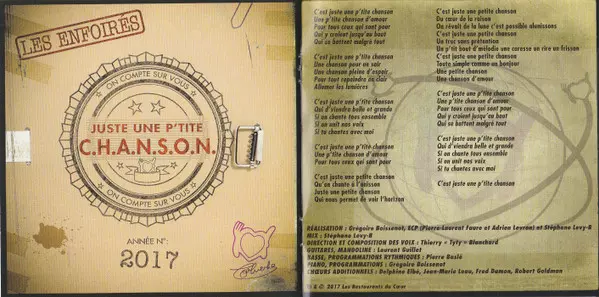 LES ENFOIRÉS
ON COMPTE SUR VOUS
JUSTE UNE P'TITE
C.H.A.N.S.O.N.
ON COMPTE SUR VOUS
ANNÉE N°:
2017
C'est juste une petite chanson
Une p'tite chanson d'amour
Pour tous ceux qui sont pour
Qui y croient jusqu'au bout
Qui se battent malgré tout
C'est juste une p'tite chanson
Une chanson pour un soir
Une chanson pleine d'espoir
Pour tout repeindre en clair
Allumer les lumières
C'est juste une p'tite chanson
Qui d'viendra belle et grande
Si on chante tous ensemble
Si on unit nos voix
Si tu chantes avec moi
C'est juste une p'tite chanson
Une p'tite chanson d'amour
Pour tous ceux qui sont pour
C'est juste une petite chanson
Qu'on chante à l'unisson
Juste une petite chanson
Qui nous permet de voir l'horizon
C'est juste une petite chanson
Du cœur de la raison
On rêvait de la lune c'est possible alunissons
C'est juste une petite chanson
Un truc sans prétention
Un p'tit bout d'mélodie une caresse un rire un frisson
C'est juste une petite chanson
Toute simple comme un bonjour
Une petite chanson
Une chanson d'amour
C'est juste une p'tite chanson
Une p'tite chanson d'amour
Pour tous ceux qui sont pour
Qui y croient jusqu'au bout
Qui se battent malgré tout
C'est juste une p'tite chanson
Qui d'viendra belle et grande
Si on chante tous ensemble
Si on unit nos voix
Si tu chantes avec moi
C'est juste une p'tite chanson
RÉALISATION : Grégoire Boissenot, ECP (Pierre-Laurent Faure et Adrien Levron) et Stéphane Levy-B
MIX : Stéphane Levy-B
DIRECTION ET COMPOSITION DES VOIX : Thierry « Tyty » Blanchard
GUITARES, MANDOLINE : Laurent Guillet
BASSE, PROGRAMMATIONS RYTHMIQUES : Pierre Baslé
PIANO, PROGRAMMATIONS : Grégoire Boissenot
CHŒURS ADDITIONNELS : Delphine Elbé, Jean-Marie Leau, Fred Damon, Robert Goldman
℗ & © 2017 Les Restaurants du Cœur